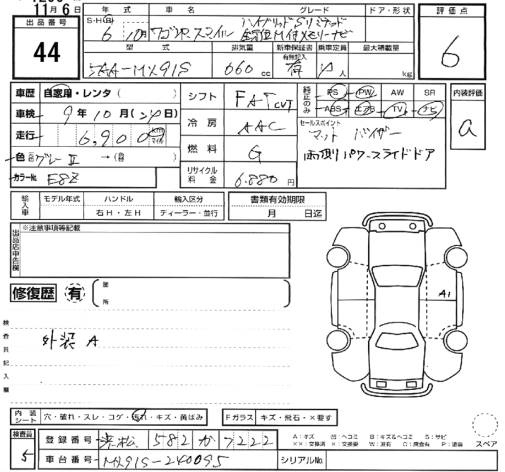 11月6日
出品番号
44
年式
車名
グレード
ドア・形状
評価点
S・H(R)
6 10月
ワゴンRスマイル
ハイブリッドSリミテッド
全方位M付メモリーナビ
6
型式
排気量
新車保証書
有無記入
乗車定員
最大積載量
5AA-MX91S
660 cc
有
人
kg
車歴 自家用・レンタ( )
車検 9年10月(20日)
走行 6,900 km マイル
色 元色 グレーⅡ → (替色 )
カラーNo. E8Z
シフト FAT CVT
冷房 AAC
燃料 G
リサイクル料金 6,880円
純正のみ
PS PW AW SR
ABS エアB TV ナビ
セールスポイント
マット バイザー
両側パワースライドドア
内装評価
a
輸入車
モデル年式
ハンドル
右H・左H
輸入区分
ディーラー・並行
書類有効期限
月 日迄
出品店申告欄
※注意事項等記載
修復歴 有
箇所
検査員記入欄
外装 A
A1
内装シート
穴・破れ・スレ・コゲ・汚れ・キズ・黄ばみ
Fガラス
キズ・飛石・×要す
検査員
5
登録番号 浜松 582 か 7222
車台番号 MX91S-240095
シリアルNo.
A:キズ U:ヘコミ B:キズ&ヘコミ S:サビ
××:交換済 X:交換要 W:波有 C:腐食有 P:塗装
スペア